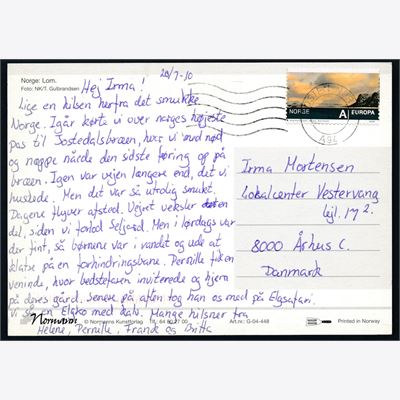 20/7-10
Norge: Lom.
Foto: NK/T. Gulbrandsen
Hej Irma!
Lige en hilsen herfra det smukke
Norge. Igår kørte vi over norges højeste
pas til Jostedalsbræen, hvor vi med nød
og næppe nåede den sidste færing op på
bræen. Igen var vejen længere end, det vi
huskede. Men det var så utrolig smukt.
Dagene flyver afsted. Vejret veksler en
del, siden vi forlod Seljord. Men i lørdags var
der fint, så børnene var i vandet og ude at
klatre på en forhindringsbane. Pernille fik en
veninde, hvor bedstefaren inviterede os hjem
på deres gård. Senere på aften tog han os med på Elgsafari.
Vi så en Elgko med kalv. Mange hilsner fra
Helene, Pernille, Frank og Britta
Normanns
© Normanns Kunstforlag
Tlf.: 64 80 27 00
Art.nr.: G-04-448
Printed in Norway
NORGE
A EUROPA
Irma Mortensen
Lokalcenter Vestervang
lejl. 192.
8000 Århus C.
Danmark